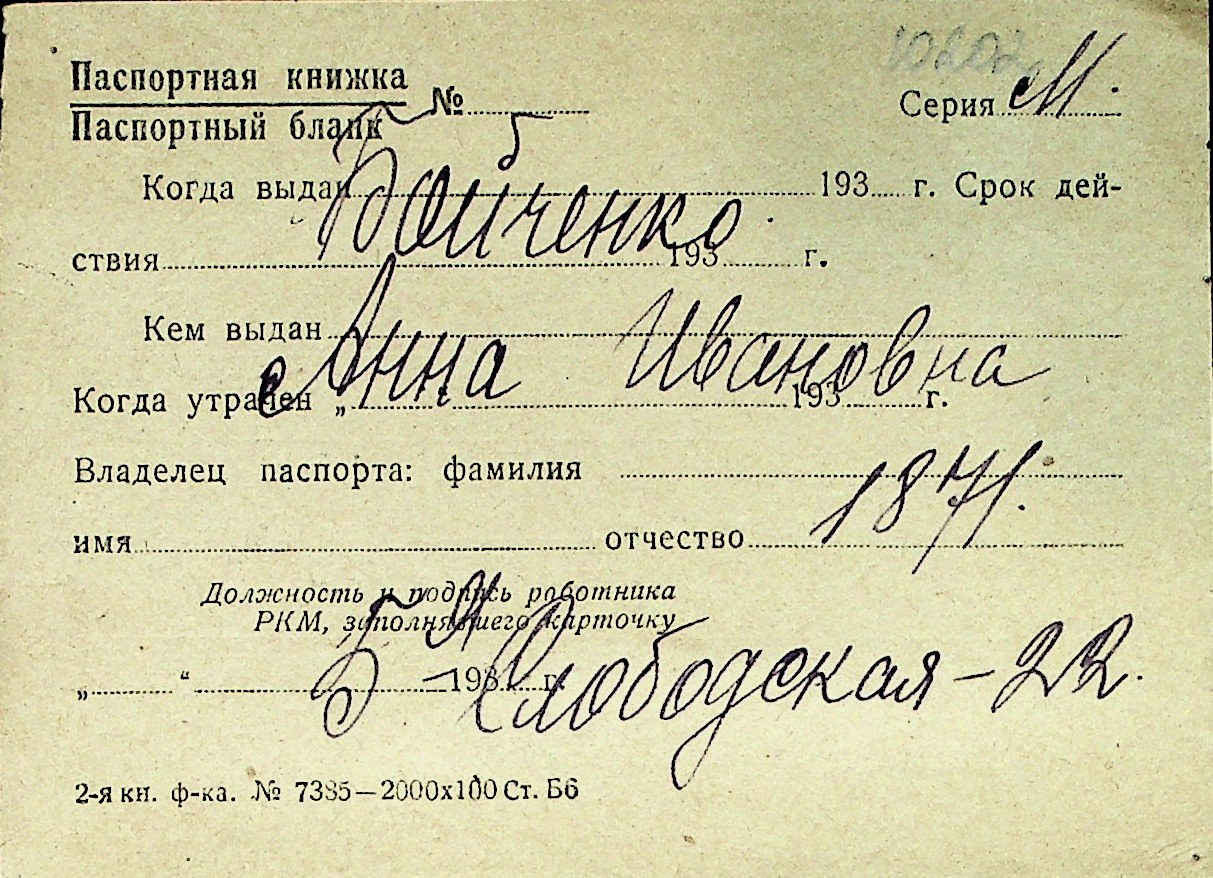 10202
Паспортная книжка
Паспортный бланк № Серия М.
Когда выдан 193 г. Срок дей-
Бойченко
ствия 193 г.
Кем выдан
Анна Ивановна
Когда утрачен „ “ 193 г.
Владелец паспорта: фамилия
1871.
имя отчество
Должность и подпись работника
РКМ, заполнявшего карточку
„ “ 193 г.
Слободская – 22.
2-я кн. ф-ка. № 7385—2000х100 Ст. Б6